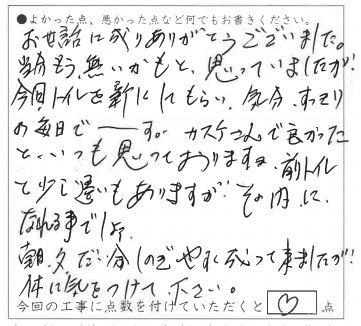 ●よかった点、悪かった点など何でもお書きください。
お世話に成りありがとうございました。
当分もう無いかもと、思っていましたが!
今回トイレを新にしてもらい、気分、すっきり
の毎日で――す。カスケさんで良かった
と、いつも思っております。前トイレ
と少し違いもありますが!その内に、
なれる事でしょ。
朝、夕だい分しのぎやすく成って来ましたが!
体に気をつけて下さい。
今回の工事に点数を付けていただくと ♡ 点